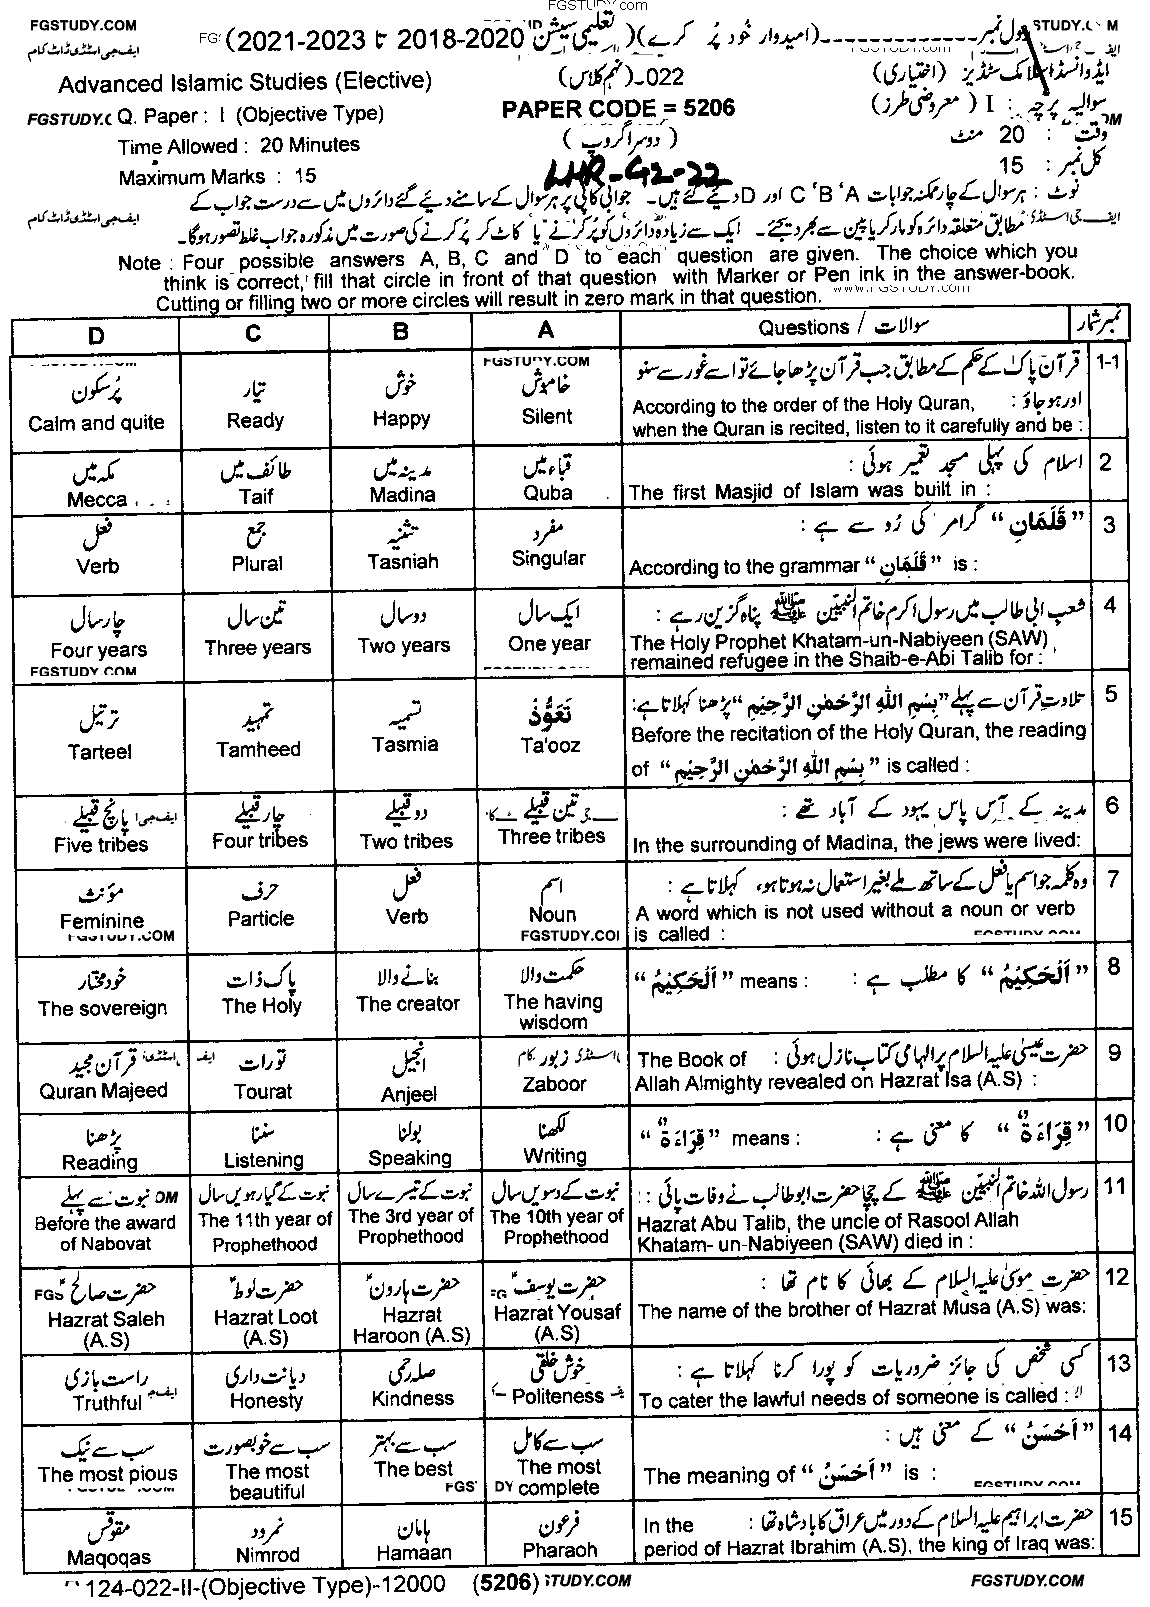 FGSTUDY.com
FGSTUDY.COM
ایف جی اسٹڈی ڈاٹ کام
(امیدوار خود پُر کرے) (تعلیمی سیشن 2018-2020 تا 2021-2023)
STUDY.COM
Advanced Islamic Studies (Elective)
022-(نہم کلاس)
ایڈوانسڈ اسلامک سٹڈیز (اختیاری)
FGSTUDY.C Q. Paper : I (Objective Type)
PAPER CODE = 5206
سوالیہ پرچہ : I (معروضی طرز)
Time Allowed : 20 Minutes
(دوسرا گروپ)
وقت : 20 منٹ
Maximum Marks : 15
LHR-G2-22
کل نمبر : 15
نوٹ : ہر سوال کے چار ممکنہ جوابات A ، B ، C اور D دیئے گئے ہیں۔ جوابی کاپی پر ہر سوال کے سامنے دیئے گئے دائروں میں سے درست جواب کے
مطابق متعلقہ دائرہ کو مارکر یا پین سے بھر دیجئے۔ ایک سے زیادہ دائروں کو پُر کرنے یا کاٹ کر پُر کرنے کی صورت میں مذکورہ جواب غلط تصور ہوگا۔
ایف جی اسٹڈی ڈاٹ کام
Note : Four possible answers A, B, C and D to each question are given. The choice which you
think is correct, fill that circle in front of that question with Marker or Pen ink in the answer-book.
Cutting or filling two or more circles will result in zero mark in that question.
www.FGSTUDY.com
D C B A Questions / سوالات نمبر شمار
FGSTUDY.COM
پُرسکون تیار خوش خاموش قرآن پاک کے حکم کے مطابق جب قرآن پڑھا جائے تو اسے غور سے سنو 1-1
Calm and quite Ready Happy Silent According to the order of the Holy Quran, اور ہو جاؤ :
when the Quran is recited, listen to it carefully and be :
مکہ میں طائف میں مدینہ میں قباء میں اسلام کی پہلی مسجد تعمیر ہوئی : 2
Mecca Taif Madina Quba The first Masjid of Islam was built in :
فعل جمع تثنیہ مفرد "قَلَمَانِ" گرامر کی رُو سے ہے : 3
Verb Plural Tasniah Singular According to the grammar "قَلَمَانِ" is :
چار سال تین سال دو سال ایک سال شعب ابی طالب میں رسول اکرم خاتم النبیّین ﷺ پناہ گزین رہے : 4
Four years Three years Two years One year The Holy Prophet Khatam-un-Nabiyeen (SAW)
FGSTUDY.COM remained refugee in the Shaib-e-Abi Talib for :
ترتیل تمہید تسمیہ تَعَوُّذ تلاوتِ قرآن سے پہلے "بِسْمِ اللّٰهِ الرَّحْمٰنِ الرَّحِيْمِ" پڑھنا کہلاتا ہے: 5
Tarteel Tamheed Tasmia Ta'ooz Before the recitation of the Holy Quran, the reading
of "بِسْمِ اللّٰهِ الرَّحْمٰنِ الرَّحِيْمِ" is called :
پانچ قبیلے چار قبیلے دو قبیلے تین قبیلے مدینہ کے آس پاس یہود کے آباد تھے : 6
Five tribes Four tribes Two tribes Three tribes In the surrounding of Madina, the jews were lived:
مؤنث حرف فعل اسم وہ کلمہ جو اسم یا فعل کے ساتھ ملے بغیر استعمال نہ ہوتا ہو، کہلاتا ہے : 7
Feminine Particle Verb Noun A word which is not used without a noun or verb
FGSTUDY.COM FGSTUDY.COM is called : FGSTUDY.COM
خود مختار پاک ذات بنانے والا حکمت والا "اَلْحَكِيْمُ" کا مطلب ہے : means : "اَلْحَكِيْمُ" 8
The sovereign The Holy The creator The having
wisdom
قرآن مجید تورات انجیل زبور حضرت عیسیٰ علیہ السلام پر الہامی کتاب نازل ہوئی : The Book of 9
Quran Majeed Tourat Anjeel Zaboor Allah Almighty revealed on Hazrat Isa (A.S) :
پڑھنا سننا بولنا لکھنا "قِرَاءَةٌ" کا معنی ہے : means : "قِرَاءَةٌ" 10
Reading Listening Speaking Writing
نبوت سے پہلے نبوت کے گیارہویں سال نبوت کے تیسرے سال نبوت کے دسویں سال رسول اللہ خاتم النبیّین ﷺ کے چچا حضرت ابوطالب نے وفات پائی : 11
Before the award The 11th year of The 3rd year of The 10th year of Hazrat Abu Talib, the uncle of Rasool Allah
of Nabovat Prophethood Prophethood Prophethood Khatam- un-Nabiyeen (SAW) died in :
حضرت صالحؑ حضرت لوطؑ حضرت ہارونؑ حضرت یوسفؑ حضرت موسیٰ علیہ السلام کے بھائی کا نام تھا : 12
Hazrat Saleh Hazrat Loot Hazrat Hazrat Yousaf The name of the brother of Hazrat Musa (A.S) was:
(A.S) (A.S) Haroon (A.S) (A.S)
راست بازی دیانت داری صلہ رحمی خوش خلقی کسی شخص کی جائز ضروریات کو پورا کرنا کہلاتا ہے : 13
Truthful Honesty Kindness Politeness To cater the lawful needs of someone is called :
سب سے نیک سب سے خوبصورت سب سے بہتر سب سے کامل "اَحْسَنُ" کے معنی ہیں : 14
The most pious The most The best The most The meaning of "اَحْسَنُ" is : FGSTUDY.COM
beautiful complete
مقوقس نمرود ہامان فرعون حضرت ابراہیم علیہ السلام کے دور میں عراق کا بادشاہ تھا : In the 15
Maqoqas Nimrod Hamaan Pharaoh period of Hazrat Ibrahim (A.S), the king of Iraq was:
124-022-II-(Objective Type)-12000 (5206) STUDY.COM FGSTUDY.COM